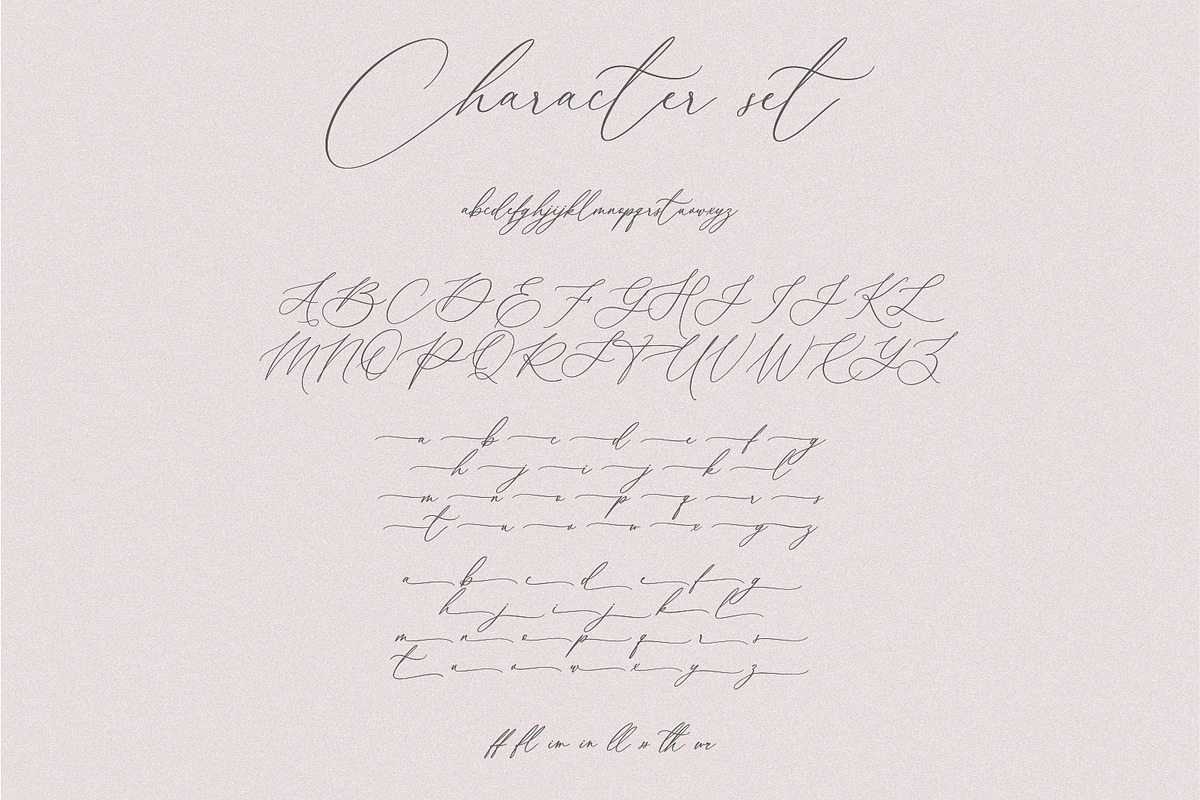 Character set
abcdefghjijklmnopqrstuvwxyz
A B C D E F G H J I J K L
M N O P Q R S T U V W X Y Z
a b c d e f g
h j i j k l
m n o p q r s
t u v w x y z
a b c d e f g
h j i j k l
m n o p q r s
t u v w x y z
ff fl im in ll ss th wr